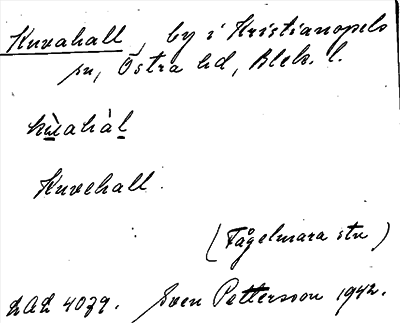 Kuvahall, by i Kristianopels
sn, Östra hd, Blek. l.
kùahàl
Kuvehall.
(Fågelmara stn)
LAL 4039. Sven Pettersson 1942.